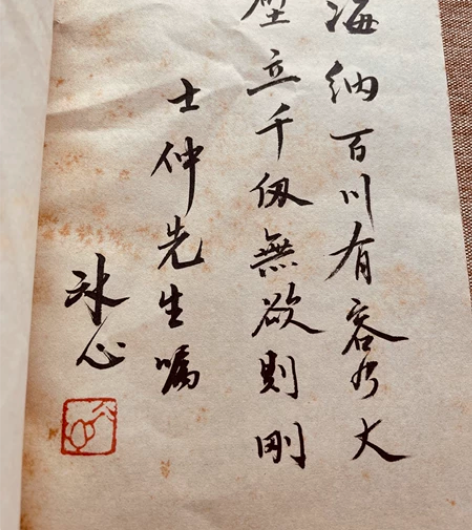 海纳百川有容乃大
壁立千仞無欲則剛
士仲先生嘱
冰心